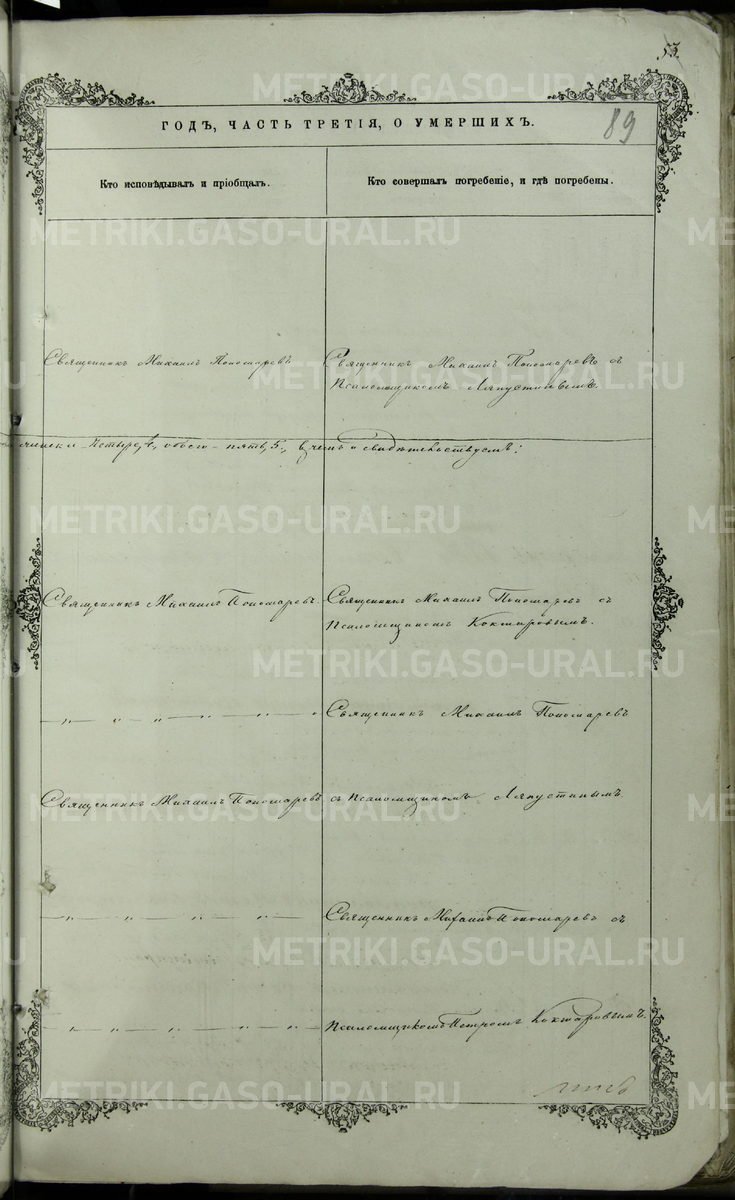 53.
ГОДЪ, ЧАСТЬ ТРЕТІЯ, О УМЕРШИХЪ.
89
Кто исповѣдывалъ и пріобщалъ.
Кто совершалъ погребеніе, и гдѣ погребены.
Священникъ Михаилъ Пономаревъ
Священникъ Михаилъ Пономаревъ съ
Псаломщикомъ Ляпустинымъ.
четыре, 4, обоего пять, 5, въ чемъ и свидѣтельствуемъ:
Священникъ Михаилъ Пономаревъ.
Священникъ Михаилъ Пономаревъ съ
Псаломщикомъ Коктаровымъ.
— „ — „ „ — „ — „ — „
Священникъ Михаилъ Пономаревъ
Священникъ Михаилъ Пономаревъ
съ Псаломщикомъ Ляпустинымъ.
— „ — „ — „ — „ — „ —
Священникъ Михаилъ Пономаревъ съ
— „ — „ — „ — „ — „ —
Псаломщикомъ Петромъ Коктаровымъ.
METRIKI.GASO-URAL.RU
METRIKI.GASO-URAL.RU
METRIKI.GASO-URAL.RU
METRIKI.GASO-URAL.RU
METRIKI.GASO-URAL.RU
METRIKI.GASO-URAL.RU
METRIKI.GASO-URAL.RU
METRIKI.GASO-URAL.RU